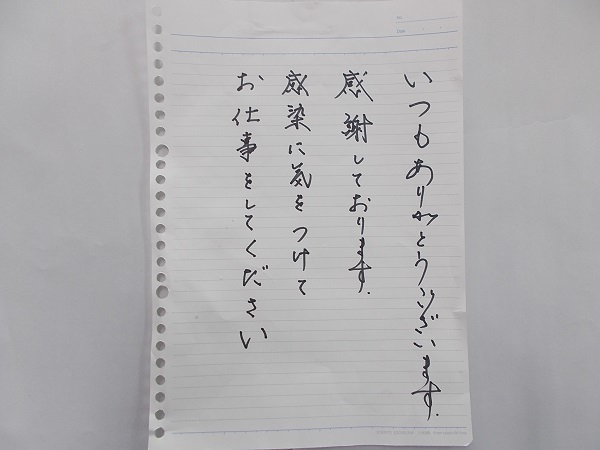 いつもありがとうございます.
感謝しております.
感染に気をつけて
お仕事をしてください
No
Date